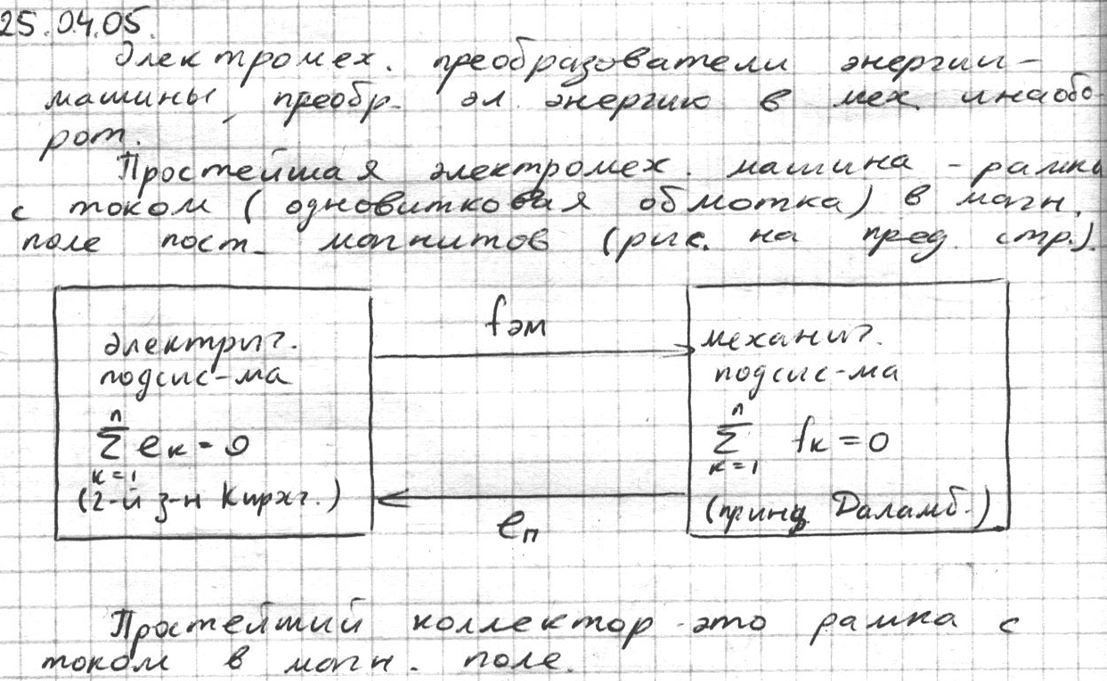 25.04.05.
Электромех. преобразователи энергии –
машины, преобр. эл. энергию в мех. и наобо-
рот.
Простейшая электромех. машина – рамка
с током (одновитковая обмотка) в магн.
поле пост. магнитов (рис. на пред. стр.).
fэм
электрич.
подсис-ма
n
∑ eк = 0
к=1
(2-й з-н Кирхг.)
механич.
подсис-ма
n
∑ fк = 0
к=1
(принц. Даламб.)
eп
Простейший коллектор – это рамка с
током в магн. поле.